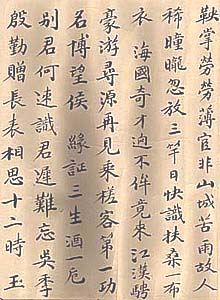 鞅掌勞勞薄官非山城苦雨故人
稀曈曨忽放三竿日快識扶桑一布
衣 海國奇才迥不侔竟來江漢騁
豪游尋源再見乘槎客第一功
名博望侯 緣証三生酒一卮
别君何速識君遲難忘吳季
殷勤贈長表相思十二時 玉